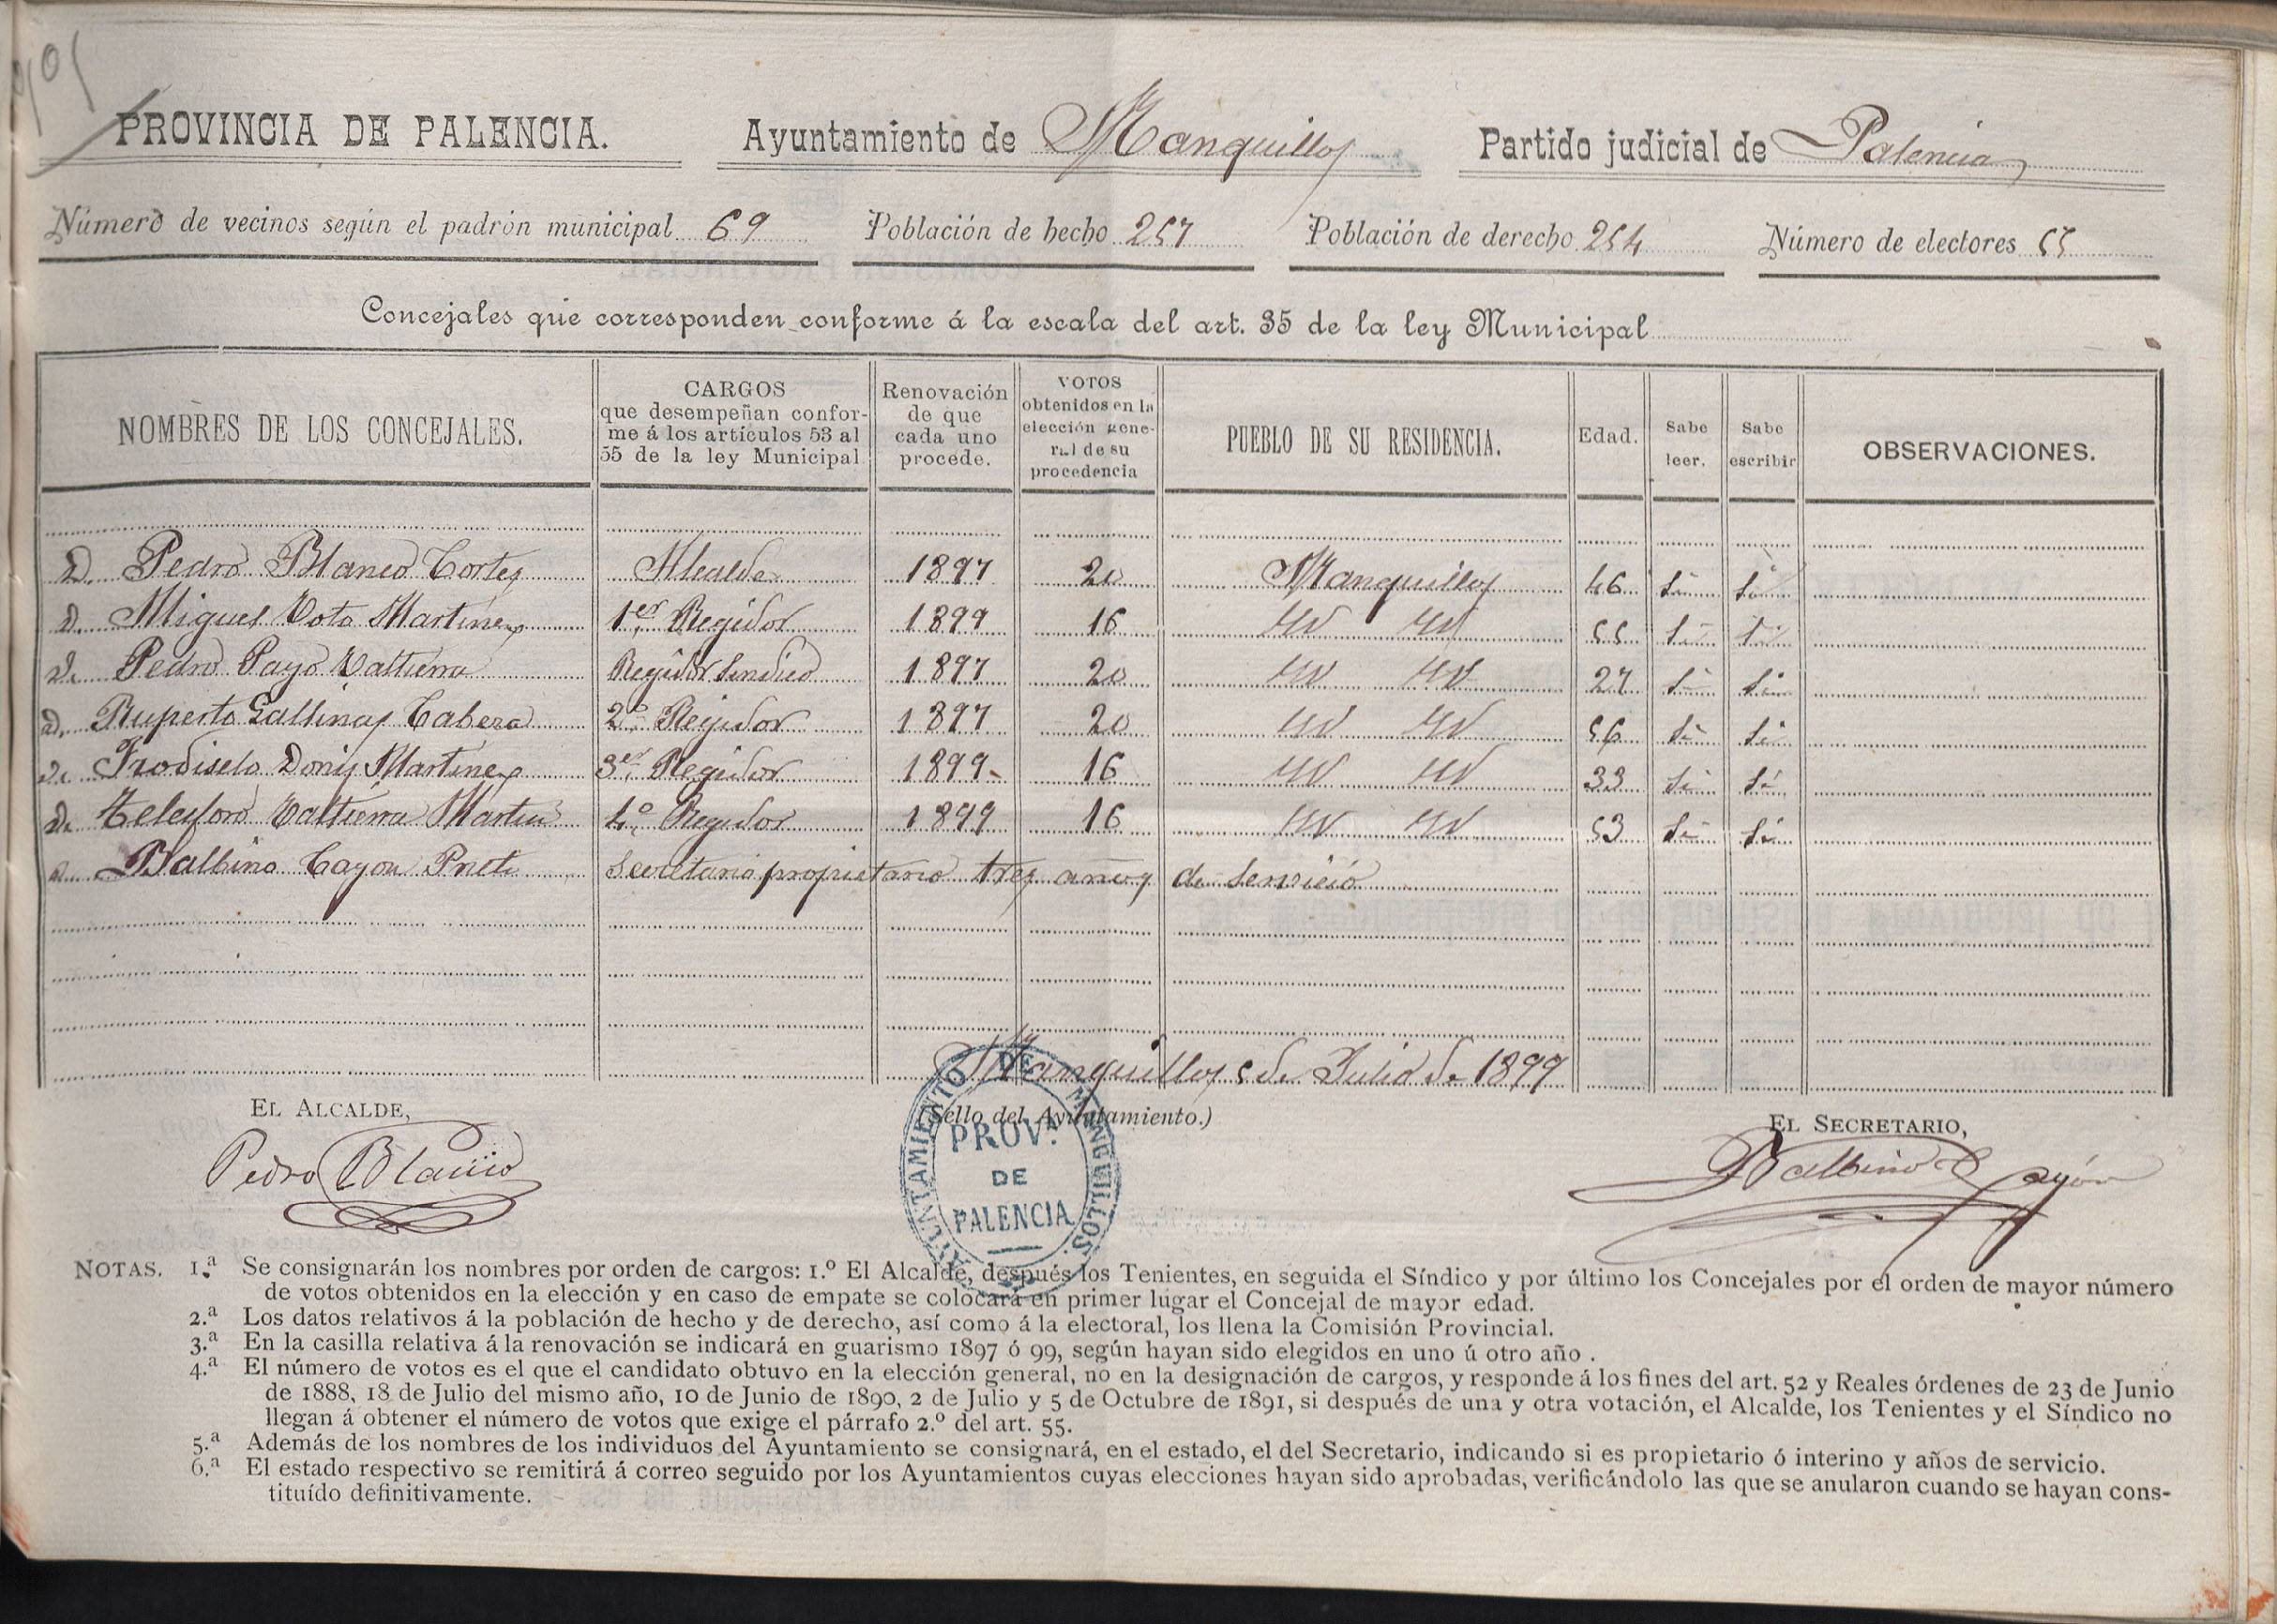 PROVINCIA DE PALENCIA. Ayuntamiento de Manquillos Partido judicial de Palencia
Número de vecinos según el padrón municipal 69 Población de hecho 257 Población de derecho 254 Número de electores 55
Concejales que corresponden conforme á la escala del art. 35 de la ley Municipal
NOMBRES DE LOS CONCEJALES. CARGOS que desempeñan confor-me á los artículos 53 al 55 de la ley Municipal Renovación de que cada uno procede. VOTOS obtenidos en la elección gene-ral de su procedencia PUEBLO DE SU RESIDENCIA. Edad. Sabe leer. Sabe escribir OBSERVACIONES.
D. Pedro Blanco Cortes Alcalde 1897 20 Manquillos 46 si si
D. Miguel Moto Martinez 1er Regidor 1899 16 55 si si
D. Pedro Payo Valtierra Regidor Sindico 1897 20 27 si si
D. Ruperto Gallinas Cabeza 2º Regidor 1897 20 56 si si
D. Donis Martinez 3er Regidor 1899 16 33 si si
D. Telesforo Valtierra Martin 4º Regidor 1899 16 53 si si
D. Balbino Cayon Prieto Secretario propietario tres anos de servicio
Manquillos 5 de Julio de 1899
EL ALCALDE, (Sello del Ayuntamiento.) EL SECRETARIO,
Pedro Blanco Balbino Cayón
AYUNTAMIENTO DE MANQUILLOS.
PROV.ª
DE
PALENCIA
NOTAS. 1.ª Se consignarán los nombres por orden de cargos: 1.º El Alcalde, después los Tenientes, en seguida el Síndico y por último los Concejales por el orden de mayor número
de votos obtenidos en la elección y en caso de empate se colocará en primer lugar el Concejal de mayor edad.
2.ª Los datos relativos á la población de hecho y de derecho, así como á la electoral, los llena la Comisión Provincial.
3.ª En la casilla relativa á la renovación se indicará en guarismo 1897 ó 99, según hayan sido elegidos en uno ú otro año.
4.ª El número de votos es el que el candidato obtuvo en la elección general, no en la designación de cargos, y responde á los fines del art. 52 y Reales órdenes de 23 de Junio
de 1888, 18 de Julio del mismo año, 10 de Junio de 1890, 2 de Julio y 5 de Octubre de 1891, si después de una y otra votación, el Alcalde, los Tenientes y el Síndico no
llegan á obtener el número de votos que exige el párrafo 2.º del art. 55.
5.ª Además de los nombres de los individuos del Ayuntamiento se consignará, en el estado, el del Secretario, indicando si es propietario ó interino y años de servicio.
6.ª El estado respectivo se remitirá á correo seguido por los Ayuntamientos cuyas elecciones hayan sido aprobadas, verificándolo las que se anularon cuando se hayan cons-
tituído definitivamente.